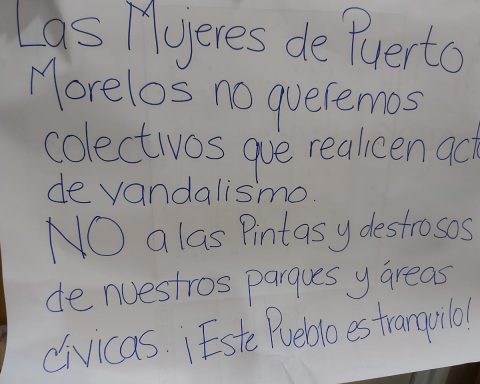 Las Mujeres de Puerto
Morelos no queremos
colectivos que realicen act
de vandalismo.
NO a las Pintas y destrosos
de nuestros parques y áreas
cívicas. ¡Este Pueblo es tranquilo!